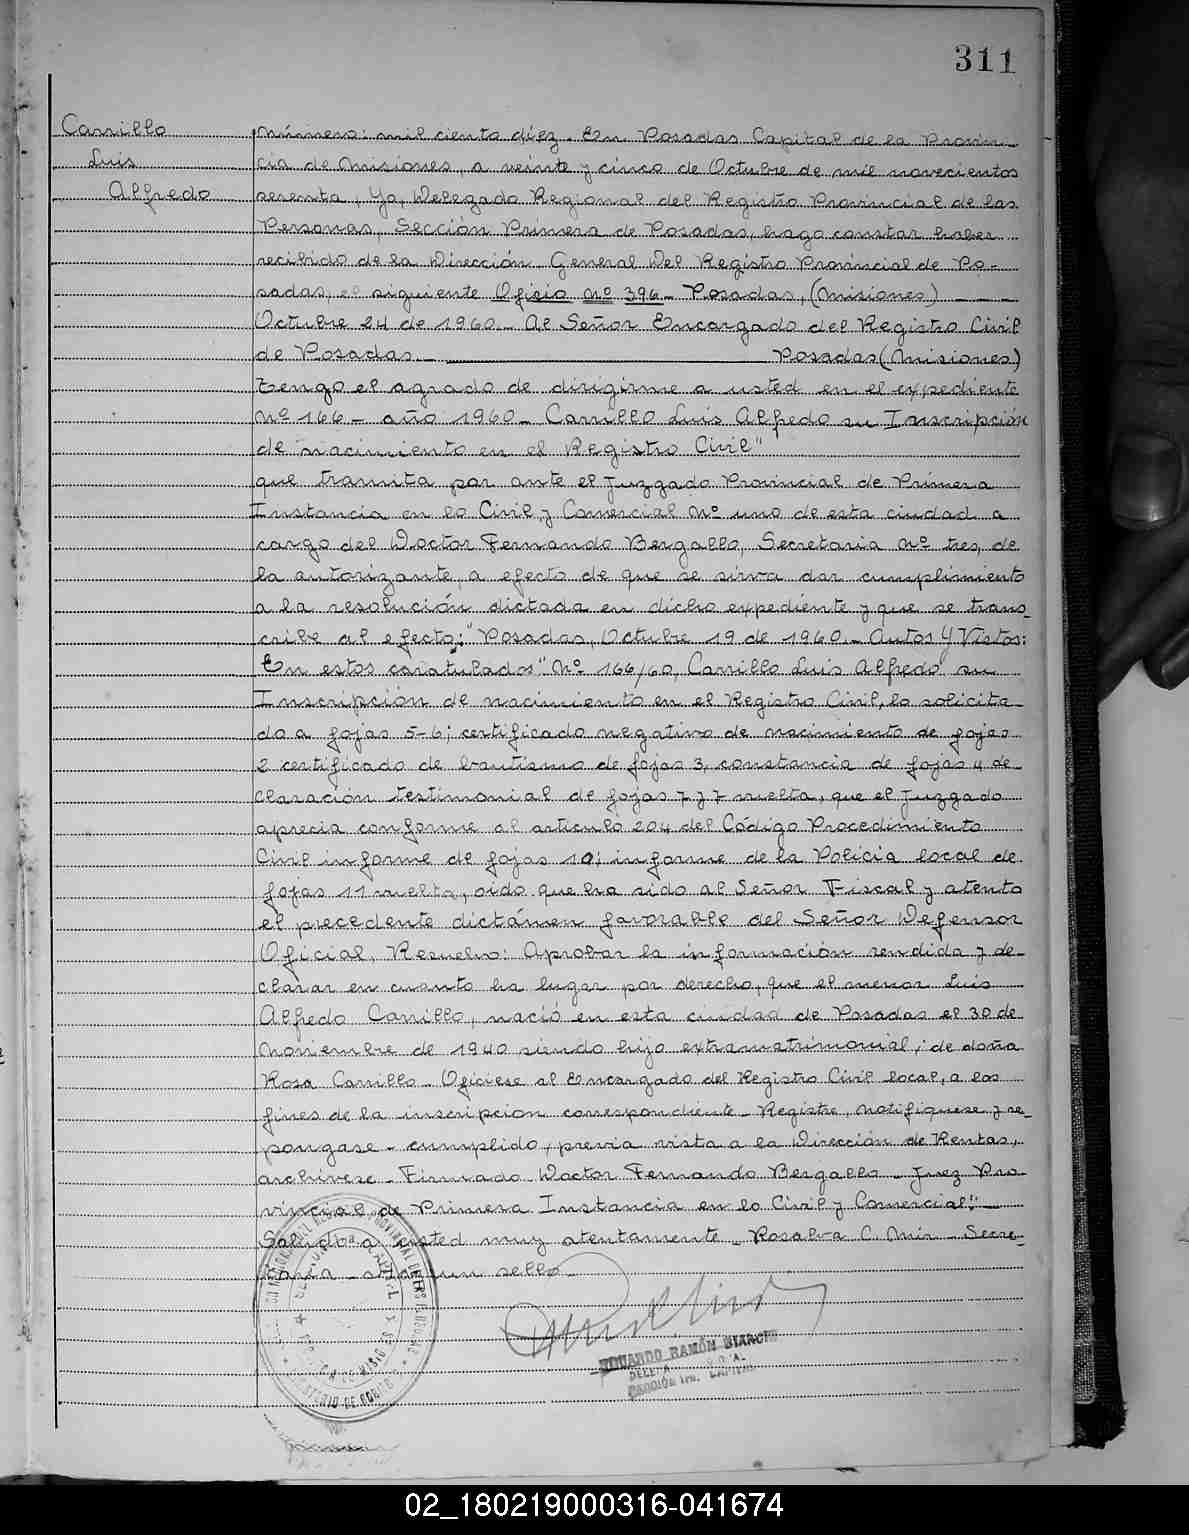 311
Carrillo
Luis
Alfredo
Número: mil ciento diez. En Posadas Capital de la Provin-
cia de Misiones, a veinte y cinco de Octubre de mil novecientos
sesenta, Yo, Delegado Regional del Registro Provincial de las
Personas, Sección Primera de Posadas, hago constar haber
recibido de la Dirección General Del Registro Provincial de Po-
sadas, el siguiente Oficio Nº 396 - Posadas, (Misiones) - - -
Octubre 24 de 1960 - Al Señor Encargado del Registro Civil
de Posadas - Posadas (Misiones)
Tengo el agrado de dirigirme a usted en el expediente
Nº 166 - año 1960 - Carrillo Luis Alfredo su Inscripción
de nacimiento en el Registro Civil"
que tramita por ante el Juzgado Provincial de Primera
Instancia en lo Civil y Comercial Nº uno de esta ciudad a
cargo del Doctor Fernando Bergallo, Secretaria Nº tres, de
la autorizante, a efecto de que se sirva dar cumplimiento
a la resolución dictada en dicho expediente y que se trans-
cribe al efecto: "Posadas, Octubre 19 de 1960 - Autos Y Vistos:
En estos caratulados "Nº 166/60, Carrillo Luis Alfredo su
Inscripción de nacimiento en el Registro Civil, lo solicita
do a fojas 5-6; certificado negativo de nacimiento de fojas
2 certificado de bautismo de fojas 3, constancia de fojas 4 de
claración testimonial de fojas 7 y 7 vuelta, que el Juzgado
aprecia conforme al artículo 204 del Código Procedimiento
Civil informe de fojas 10; informe de la Policía local de
fojas 11 vuelta, oído que ha sido al Señor Fiscal y atento
el precedente dictámen favorable del Señor Defensor
Oficial, Resuelvo: Aprobar la información rendida y de-
clarar en cuanto ha lugar por derecho, que el menor Luis
Alfredo Carrillo, nació en esta ciudad de Posadas el 30 de
Noviembre de 1940 siendo hijo extramatrimonial, de doña
Rosa Carrillo - Ofíciese al Encargado del Registro Civil local, a los
fines de la inscripción correspondiente - Registre, notifíquese y re-
póngase - cumplido, previa vista a la Dirección de Rentas,
archívese - Firmado Doctor Fernando Bergallo - Juez Pro-
vincial de Primera Instancia en lo Civil y Comercial:"
Saludo a usted muy atentamente - Rosalva C. Mir - Secre-
taria - Hay un sello -
EDUARDO RAMÓN BIANCHI
02_180219000316-041674